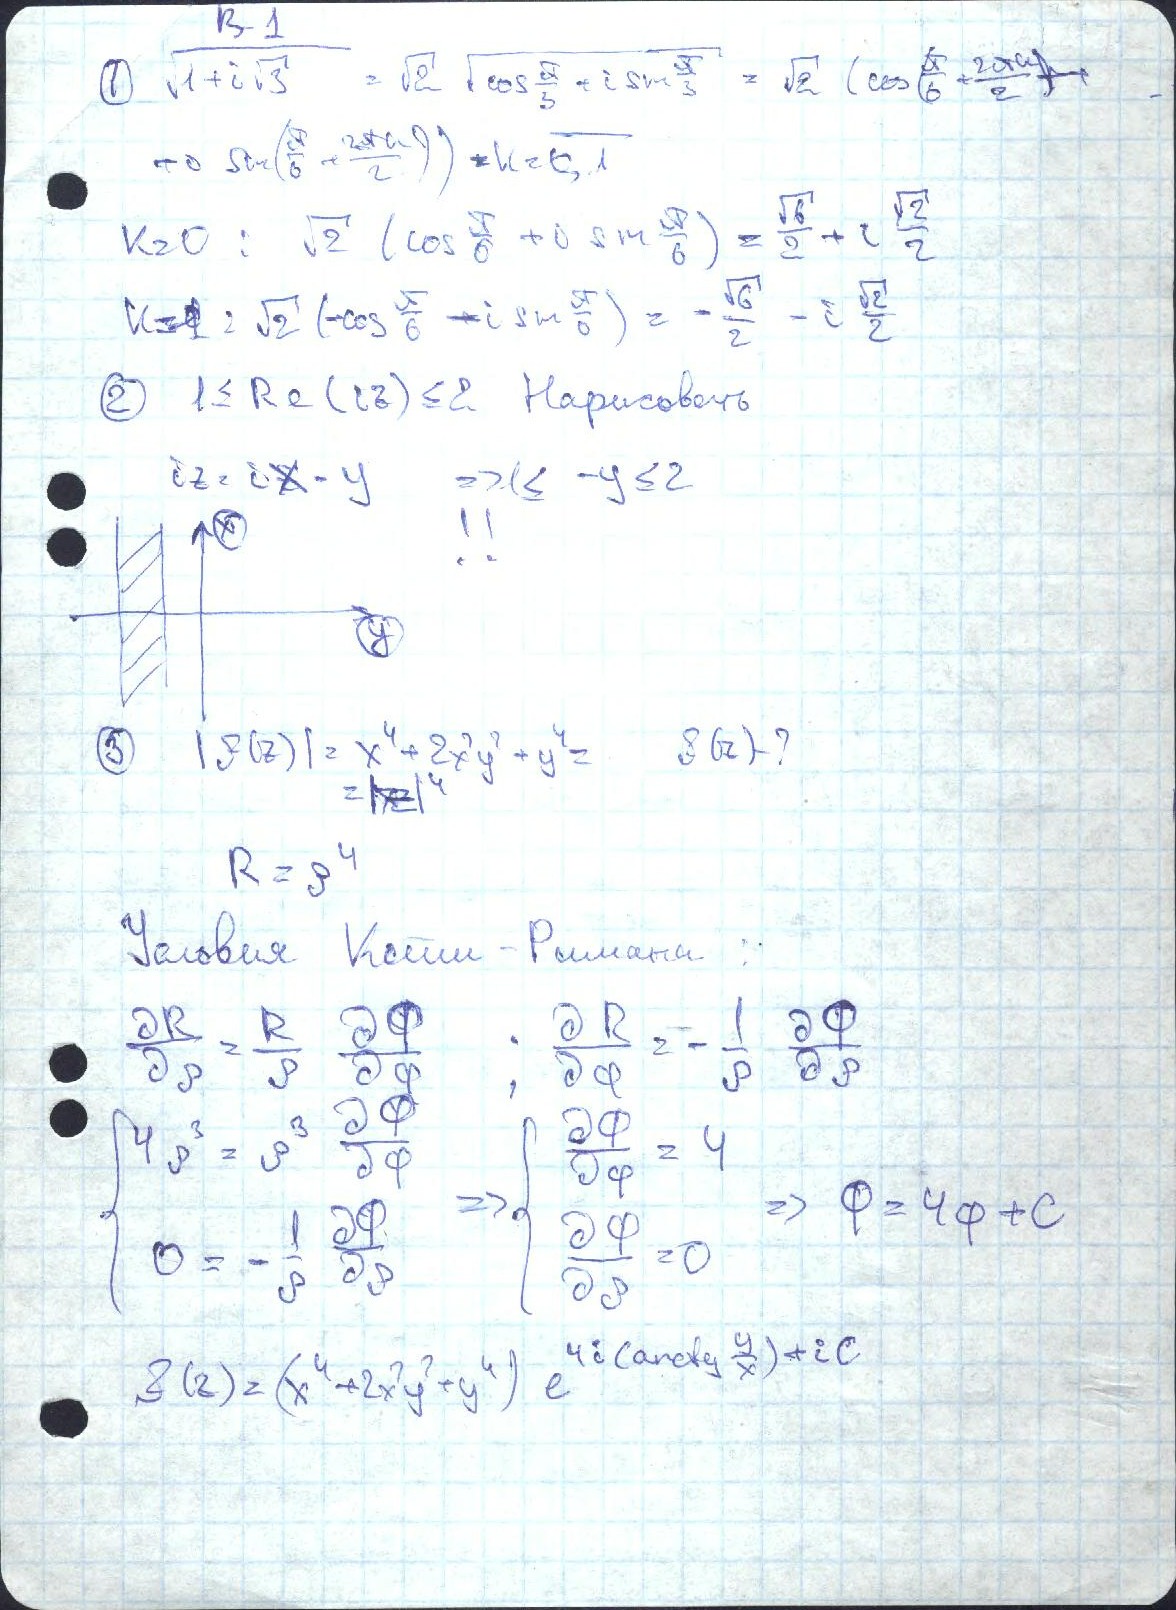 В-1
① √(1+i√3) = √2 √(cos π/3 + i sin π/3) = √2 (cos(π/6 + 2πk/2) +
+ i sin(π/6 + 2πk/2)) k = 0,1
k=0 : √2 (cos π/6 + i sin π/6) = √6/2 + i √2/2
k=1 : √2 (-cos π/6 - i sin π/6) = -√6/2 - i √2/2
② 1 ≤ Re (iz) ≤ 2 Нарисовать
iz = ix - y => 1 ≤ -y ≤ 2
!!
x
y
③ |f(z)| = x⁴ + 2x²y² + y⁴ = f(z) - ?
= |z|⁴
R = ρ⁴
Условия Коши - Римана :
∂R/∂ρ = R/ρ ∂Φ/∂φ ; ∂R/∂φ = - 1/ρ ∂Φ/∂ρ
{ 4ρ³ = ρ³ ∂Φ/∂φ => { ∂Φ/∂φ = 4 => Φ = 4φ + C
0 = - 1/ρ ∂Φ/∂ρ ∂Φ/∂ρ = 0
f(z) = (x⁴ + 2x²y² + y⁴) e^(4i(arctg y/x) + iC)